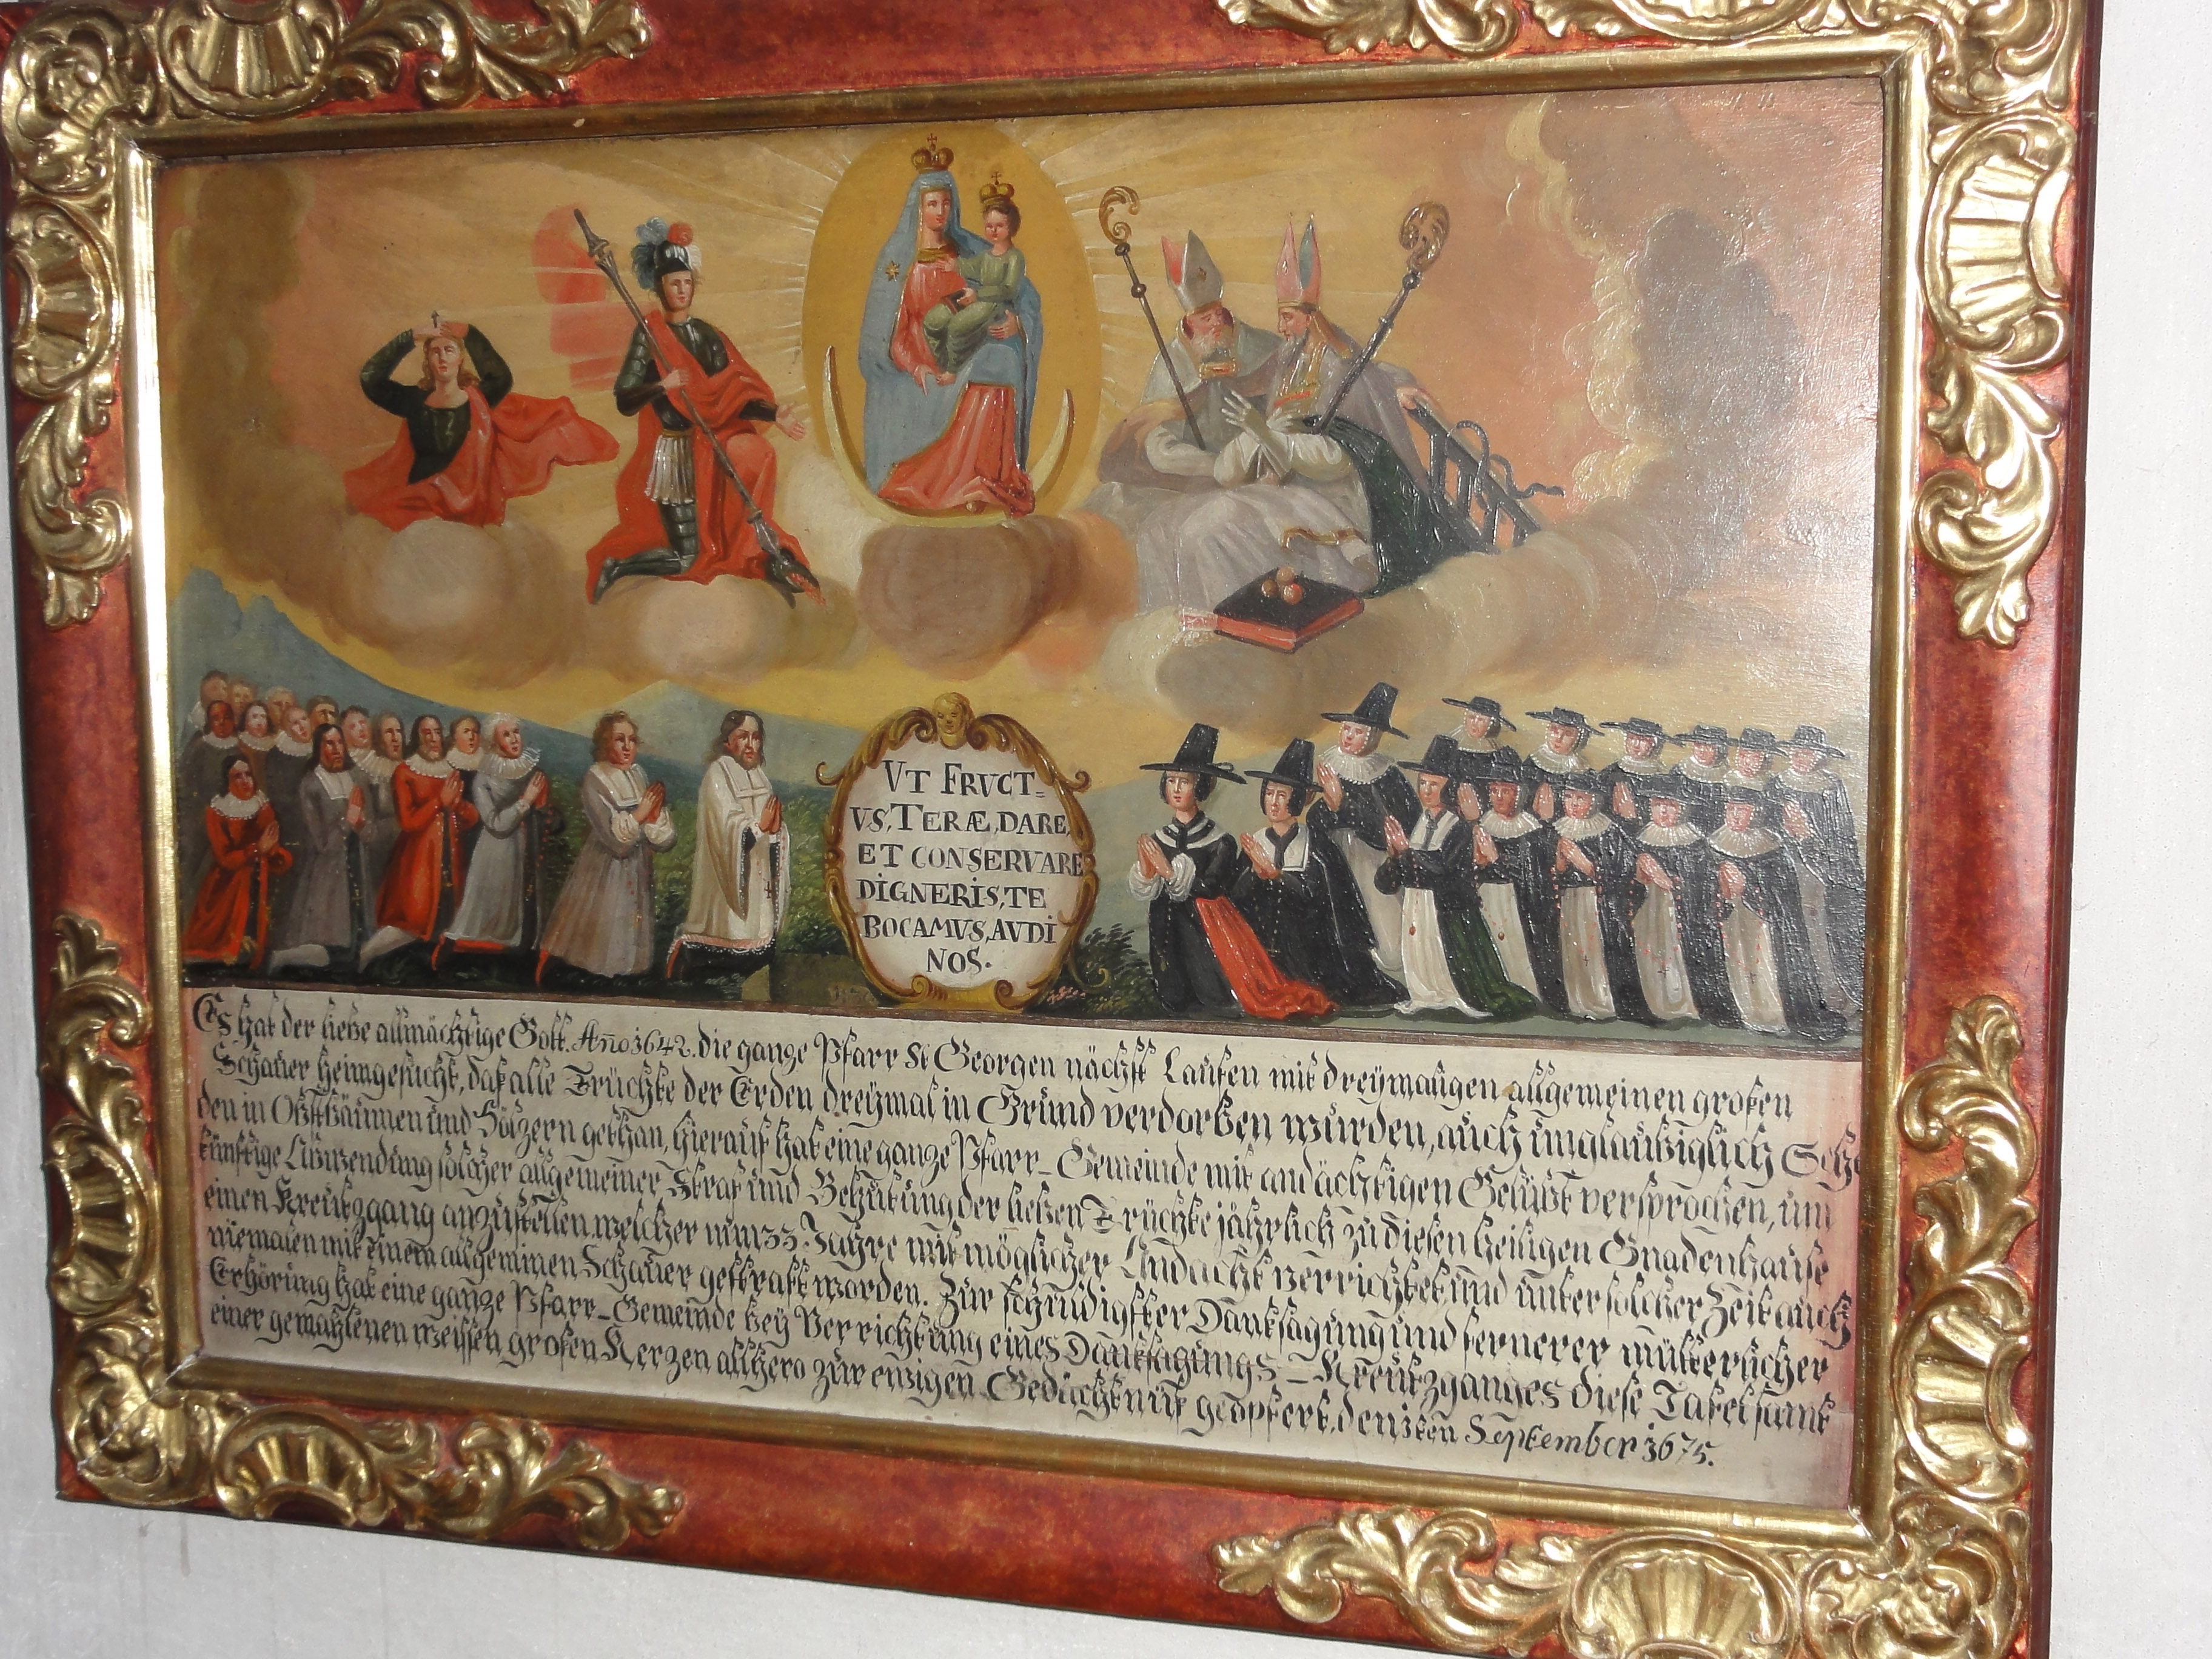 VT FRVCT=
VS, TERÆ, DARE,
ET CONSERVARE
DIGNERIS, TE
BOCAMVS, AVDI
NOS.
Es hat der liebe allmächtige Gott. Año 1642. die ganze Pfarr St Georgen nächst Laufen mit dreÿmaligen allgemeinen großen
Schauer heimgesucht, daß alle Früchte der Erden dreÿmal in Grund verdorben wurden, auch unglaubiglich Scha
den in Obstbäumen und Hölzern gethan, hierauf hat eine ganze Pfarr-Gemeinde mit andächtigen Gelübt versprochen, um
künftige Abwendung solcher allgemeiner Straf und Behütung der lieben Früchte jährlich zu diesen heiligen Gnadenhause
einen Kreutzgang anzustellen welcher nun 33. Jahre mit möglicher Andacht verrichtet und unter solcher Zeit auch
niemalen mit einem allgeminen Schauer gestraft worden. Zur schuldigster Danksagung und fernerer mütterlicher
Erhörung hat eine ganze Pfarr-Gemeinde beÿ Verrichtung eines Danksagungs-Kreutzganges diese Tafel samt
einer gemahlenen weissen großen Kerzen allhero zur ewigen Gedächtnuß geopfert, den 1ten September 1675.